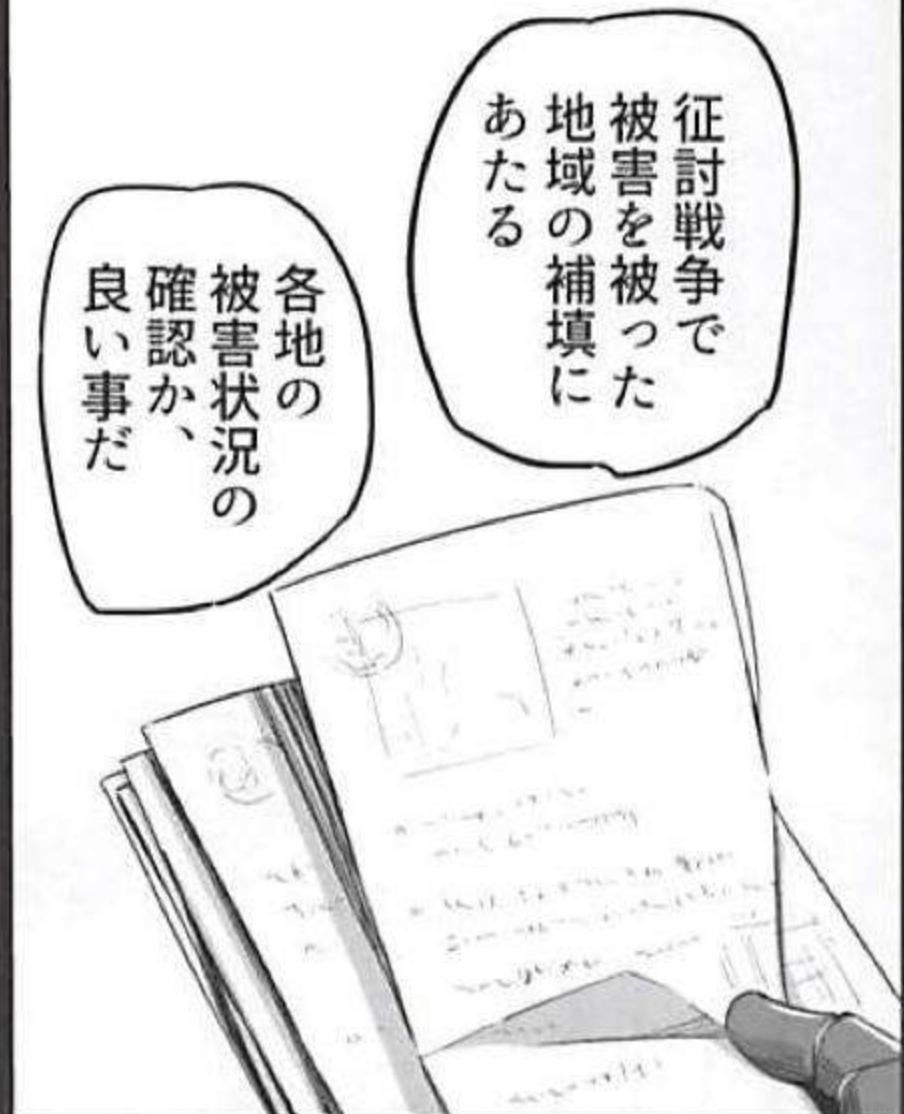 征討戦争で
被害を被った
地域の補填に
あたる
各地の
被害状況の
確認か、
良い事だ